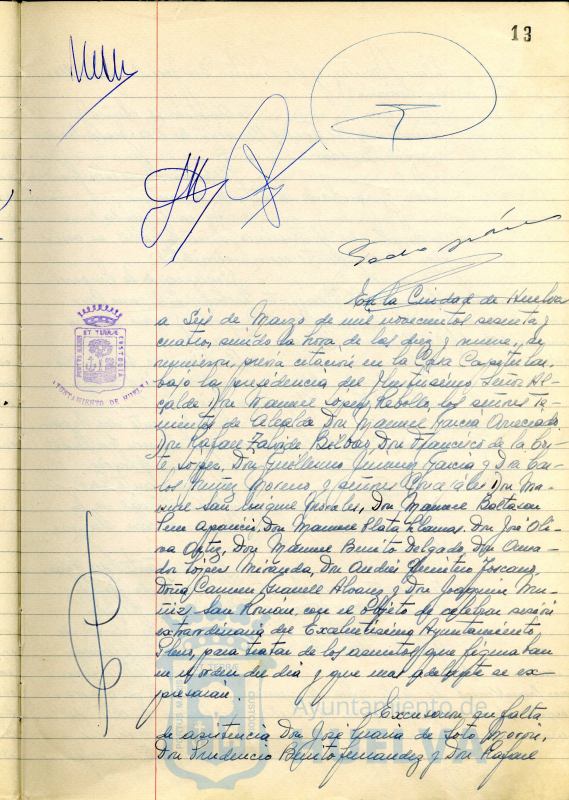 13
En la Ciudad de Huelva
a Seis de Marzo de mil novecientos sesenta y
cuatro, siendo la hora de las diez y nueve, se
reunieron, previa citación en la Casa Capitular,
bajo la presidencia del Ilustrísimo Señor Al-
calde Don Manuel López Rebollo, los señores Te-
nientes de Alcalde Don Manuel García
Don Rafael Bilbao, Don Francisco de la Cor-
te López, Don Guillermo Jiménez García y Don Car-
los Núñez Moreno y señores Concejales Don Ma-
nuel San Morales, Don Manuel Baltasar
Aparicio, Don Manuel Plata Llamas, Don José Oli-
va Ortiz, Don Manuel Benito Delgado, Don Ama-
dor López Miranda, Don Andrés Toscano,
Doña Carmen Álvarez y Don Joaquín Mu-
ñiz San Román, con el objeto de celebrar sesión
extraordinaria del Excelentísimo Ayuntamiento
Pleno, para tratar de los asuntos que figuraban
en el orden del día y que mas adelante se ex-
presarán.
Excusaron su falta
de asistencia Don José María de Soto Morón,
Don Prudencio Benito Fernández y Don Rafael
PORTUS MARIS ET TERRAE CUSTODIA
AYUNTAMIENTO DE HUELVA
Ayuntamiento de
HUELVA